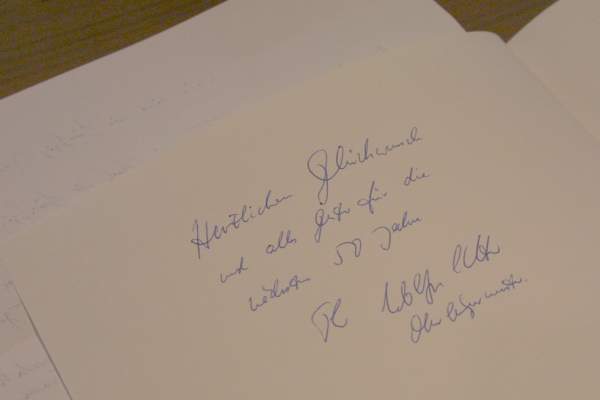 Herzlichen Glückwunsch
und alles Gute für die
nächsten 50 Jahre
Oberbürgermeister.